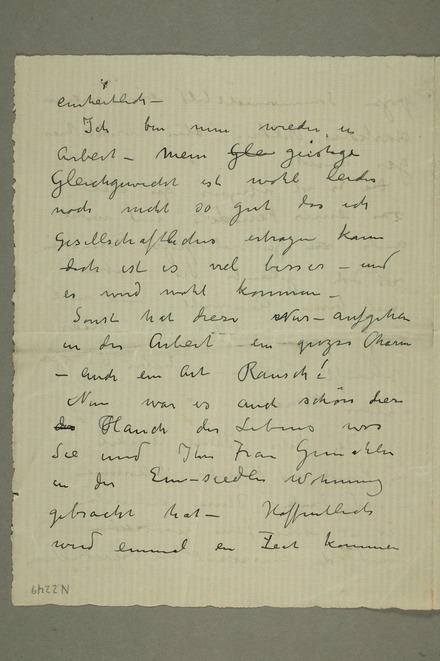 einheitlich –
Ich bin nun wieder in
Arbeit – Mein Gle geistige
Gleichgewicht ist wohl leider
noch nicht so gut das ich
Gesellschaftliches ertragen kann
doch ist es viel besser – und
es wird wohl kommen –
Sonst hat diese Nur – aufgehen
in der Arbeit ein grosser Charm
– auch ein Art Rausch!
Nun war es auch schön dieser
der Hauch des Lebens was
Sie und Ihre Frau
in der Ein-siedler Wohnung
gebracht hat – Hoffentlich
wird einmal ein Zeit kommen
N 2249